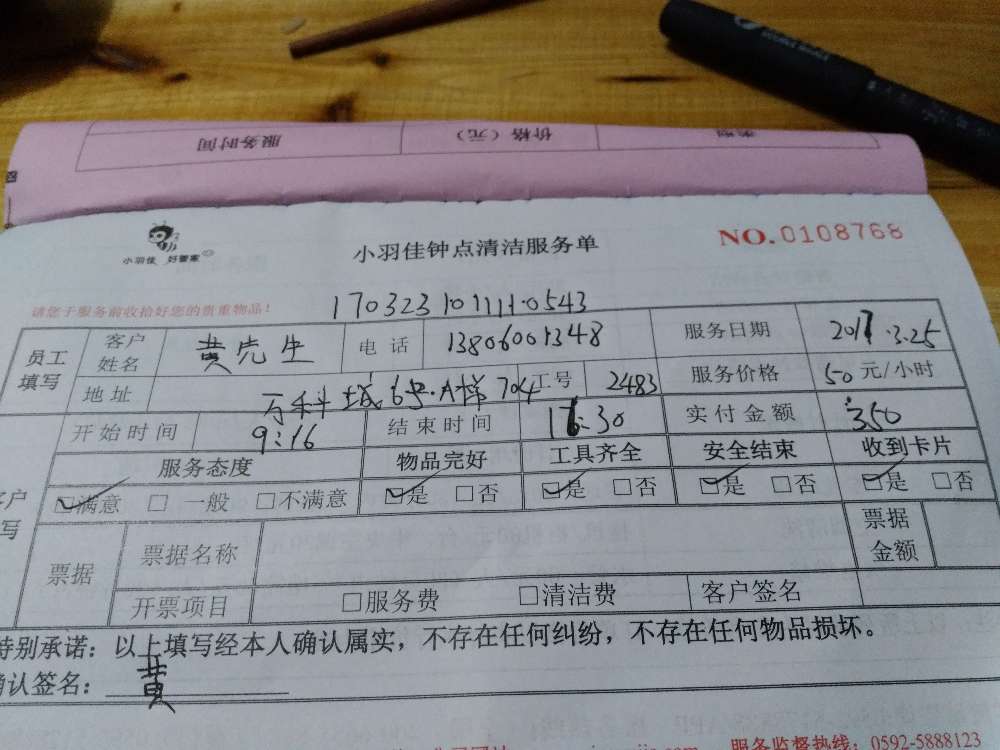 服务时间 价格（元） 类别
小羽佳 好管家
小羽佳钟点清洁服务单
NO.0108768
请您于服务前收拾好您的贵重物品！
170323101111·0543
员工填写 客户姓名 黄先生 电话 13806001348 服务日期 2017.3.25
地址 万科城6号·A梯704 工号 2483 服务价格 50元/小时
开始时间 9:16 结束时间 16:30 实付金额 350
服务态度 物品完好 工具齐全 安全结束 收到卡片
☑满意 □一般 □不满意 ☑是 □否 ☑是 □否 ☑是 □否 ☑是 □否
票据 票据名称 票据金额
开票项目 □服务费 □清洁费 客户签名
特别承诺：以上填写经本人确认属实，不存在任何纠纷，不存在任何物品损坏。
确认签名：黄
服务监督热线：0592-5888123